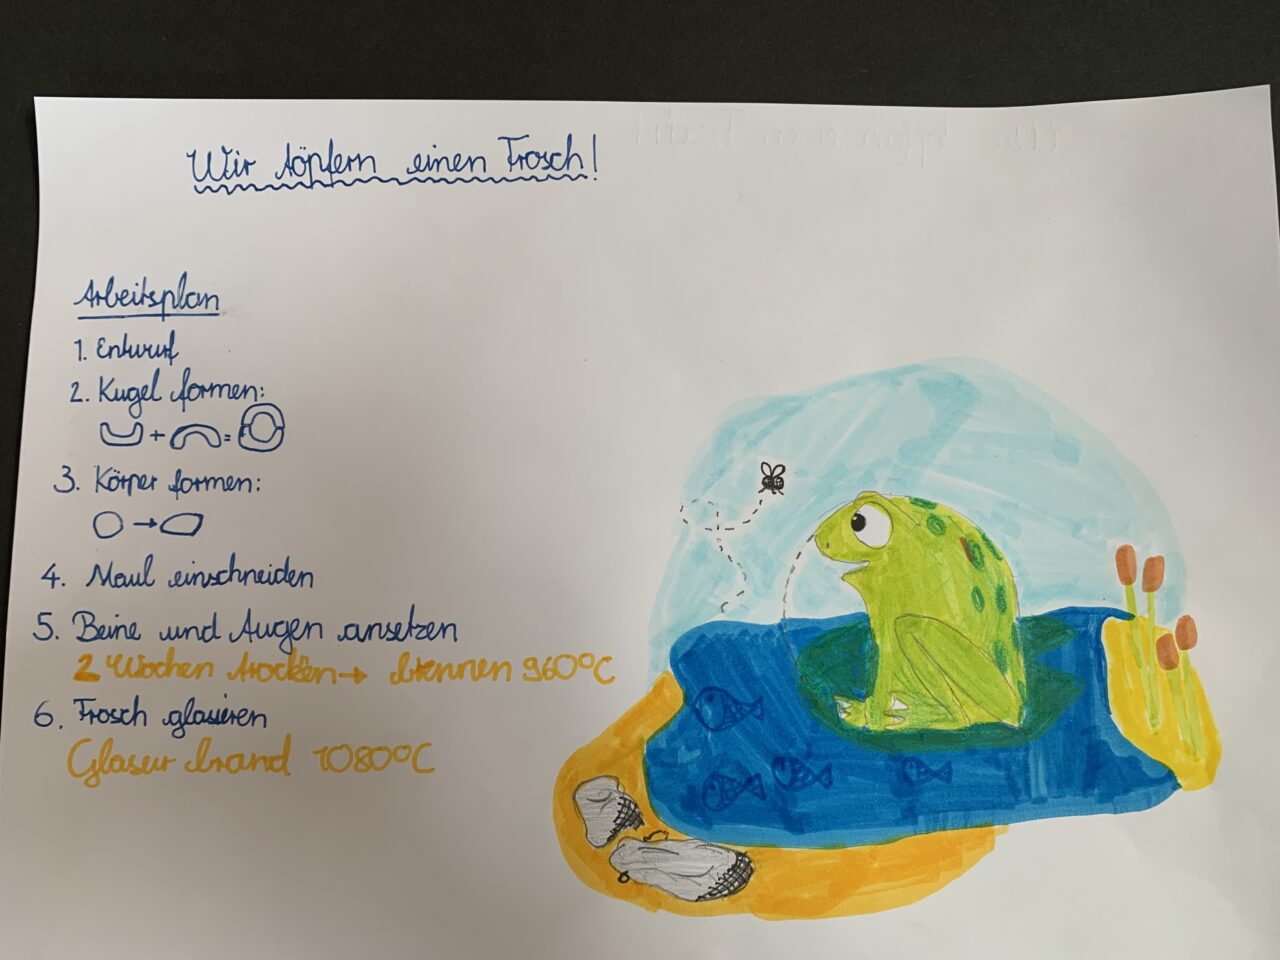 Wir töpfern einen Frosch!
Arbeitsplan
1. Entwurf
2. Kugel formen:
+ =
3. Körper formen:
→
4. Maul einschneiden
5. Beine und Augen ansetzen
2 Wochen trocken → brennen 960°C
6. Frosch glasieren
Glasur brand 1080°C